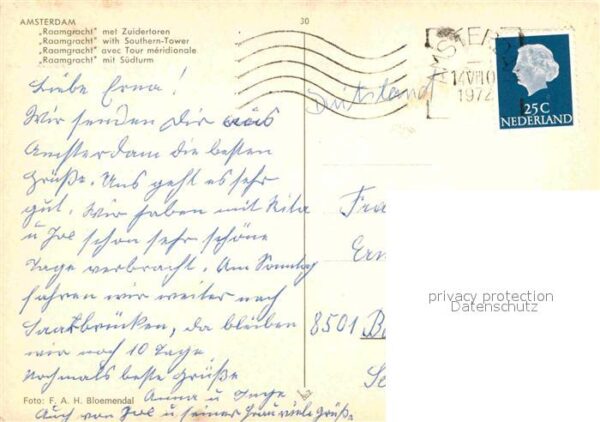 AMSTERDAM
„Raamgracht" met Zuidertoren
„Raamgracht" with Southern-Tower
„Raamgracht" avec Tour méridionale
„Raamgracht" mit Südturm
30
1972
25 C
NEDERLAND
Liebe Erna!
Wir senden Dir aus
Amsterdam die besten
Grüße. Uns geht es sehr
gut. Wir haben mit Rita
u Joe schon sehr schöne
Tage verbracht. Am Sonntag
fahren wir weiter nach
Saarbrücken, da bleiben
wir noch 10 Tage
Nochmals beste Grüße
Anna u Inge
Auch von Joe u seiner Frau viele Grüße.
Deutsland
Fra
Ern
8501 B
privacy protection
Datenschutz
Foto: F. A. H. Bloemendal